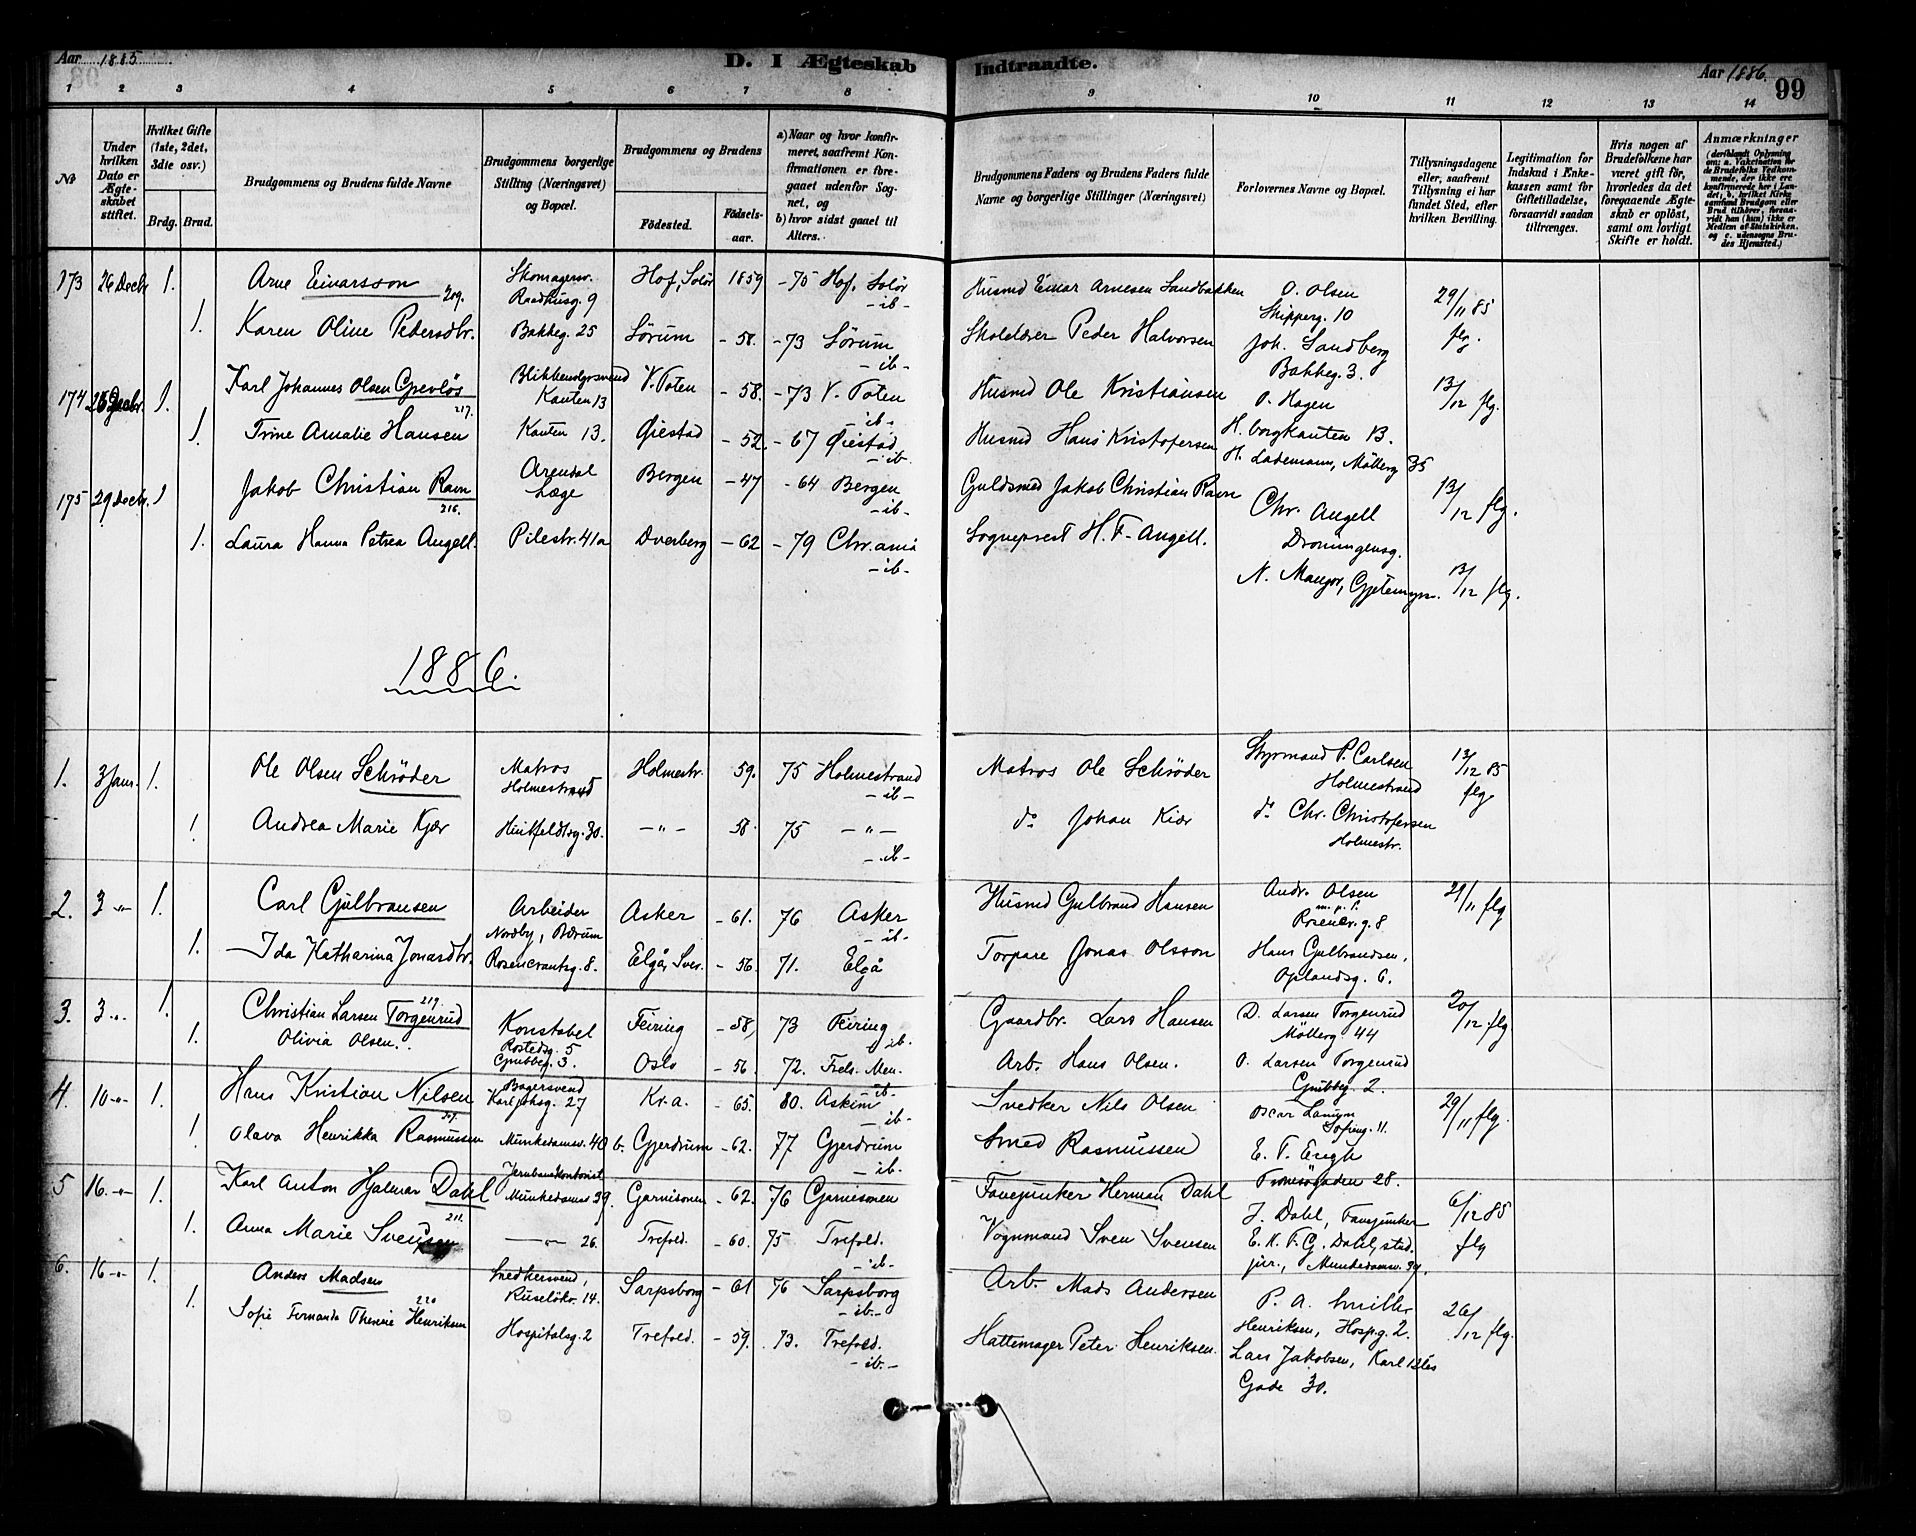 Aar 1885
D. I Ægteskab Indtraadte.
Aar 1886.
99
1 2 3 4 5 6 7 8 9 10 11 12 13 14
№
Under hvilken Dato er Ægteskabet stiftet.
Hvilket Gifte (1ste, 2det, 3die osv.)
Brdg. Brud.
Brudgommens og Brudens fulde Navne
Brudgommens borgerlige Stilling (Næringsvei) og Bopæl.
Brudgommens og Brudens
Födested.
Födselsaar.
a) Naar og hvor konfirmeret, saafremt Konfirmationen er foregaaet udenfor Sognet, og b) hvor sidst gaaet til Alters.
Brudgommens Faders og Brudens Faders fulde Navne og borgerlige Stillinger (Næringsvei)
Forlovernes Navne og Bopæl.
Tillysningsdagene eller, saafremt Tillysning ei har fundet Sted, efter hvilken Bevilling.
Legitimation for Indskud i Enkekassen samt for Giftetilladelse, forsaavidt saadan tiltrænges.
Hvis nogen af Brudefolkene har været gift før, hvorledes da det foregaaende Ægteskab er oplöst, samt om lovligt Skifte er holdt.
Anmærkninger (deriblandt Oplysning om: a. Vakcination for de Brudefolks Vedkommende, der ikke ere konfirmerede her i Landet; b. hvilket Kirkesamfund Brudgom eller Brud tilhörer, forsaavidt han (hun) ikke er Medlem af Statskirken. og c. udensogns Brudes Hjemsted.)
173 26 Decbr 1. Arne Einarsson 209. Skomagersv. Raadhusg. 9 Hof, Solör 1859 - 75 Hof, Solör - ib - Husmd Einar Arnesen Sandbakken O. Olsen Skipperg. 10 29/11 85 flg.
1. Karen Oline Pedersdtr. Bakkeg. 25 Sørum - 58. - 73 Sørum - ib - Skolelærer Peder Halvorsen Joh. Sandberg Bakkeg. 3.
174 26 Decbr. 1. Karl Johannes Olsen Grevløs 217. Kanten 13 V. Toten - 58. - 73 V. Toten - ib - Husmd Ole Kristiansen O. Hagen 13/12 flg.
1. Trine Amalie Hansen Kanten 13. Øiestad - 52. - 67 Øiestad - ib. Husmd Hans Kristofersen H. borgkanten 13. H. Lademann, Mölleg 35
175 29 Decbr. 1 Jakob Christian Ravn 216. Arendal Læge Bergen - 47 - 64 Bergen - ib - Guldsmed Jakob Christian Ravn Chr. Angell Dronningensg. 13/12 flg.
1. Laura Hanna Petrea Angell. Pilestr. 41a Dverberg - 62 - 79 Chr.ania - ib - Sogneprest H. F. Angell. 13/12 flg.
1886.
1. 3 Janr. 1. Ole Olsen Schrøder Matros Holmestrand Holmestr. 59. 75 Holmestrand - ib - Matros Ole Schrøder Styrmand P. Carlsen Holmestrand 13/12 85 flg.
1. Andrea Marie Kjær 30. - " - 58. 75 - " - - ib - do Johan Kiær do Chr. Christofersen Holmestr.
2. 3 -"- 1. Carl Gulbransen Arbeider Nordby, Bærum Asker - 61. 76 Asker - ib - Husmd Gulbrand Hansen Andr. Olsen Rosencr.g. 8 29/11 flg
1. Ida Katharina Jonasdtr. Rosencrantzg. 8. Elgå, Sver. - 56. 71. Elgå Torpare Jonas Olsson Hans Gulbrandsen, Oplandsg. 6.
3. 3 -"- 1. Christian Larsen Torgenrud 219. Konstabel Rostedsg. 5 Feiring - 58, 73 Feiring - ib. Gaardbr. Lars Hansen D. Larsen Torgenrud Mölleg. 44 20/12 flg
1. Olivia Olsen. Grubbeg. 3. Oslo - 56. 72. Frels. Men. ib - Arb. Hans Olsen. O. Larsen Torgenrud Grubbeg. 2.
4. 10 -"- 1. Hans Kristian Nilsen Bagersvend Karl Johsg. 27 Kr.a. - 65. 80. Askim - ib - Snedker Nils Olsen Oscar Sofieng. 11. 29/11 flg.
1. Olava Henrikka Rasmussen Munkedamsv. 40 b. Gjerdrum - 62. 77 Gjerdrum - ib. Smed Rasmussen E. T. Engh Tromsögaden 28.
5 16. -"- 1. Karl Anton Hjalmar Dahl 211. Jernbanekontorist Munkedamsv 39. Garnisonen - 62. 76 Garnisonen Fanejunker Herman Dahl J. Dahl, Fanejunker 6/12 85 flg
1. Anna Marie Svensen -"- 26. Trefold. - 60. 75 Trefold. - ib - Vognmand Sven Svensen E. K. F. G. Dahl, stud. jur., Munkedamsv. 39.
6. 16 -"- 1. Anders Madsen 220 Snedkersvend, Ruselökv. 14. Sarpsborg - 61 76 Sarpsborg - ib. - Arb. Mads Andersen P. A. Henriksen, Hospg. 2. 26/12 flg.
1. Sofie Fernanda Therese Henriksen Hospitalsg. 2 Trefold. - 59. 73. Trefold. - ib. - Hattemager Peter Henriksen. Lars Jakobsen, Karl 12tes Gade 30.